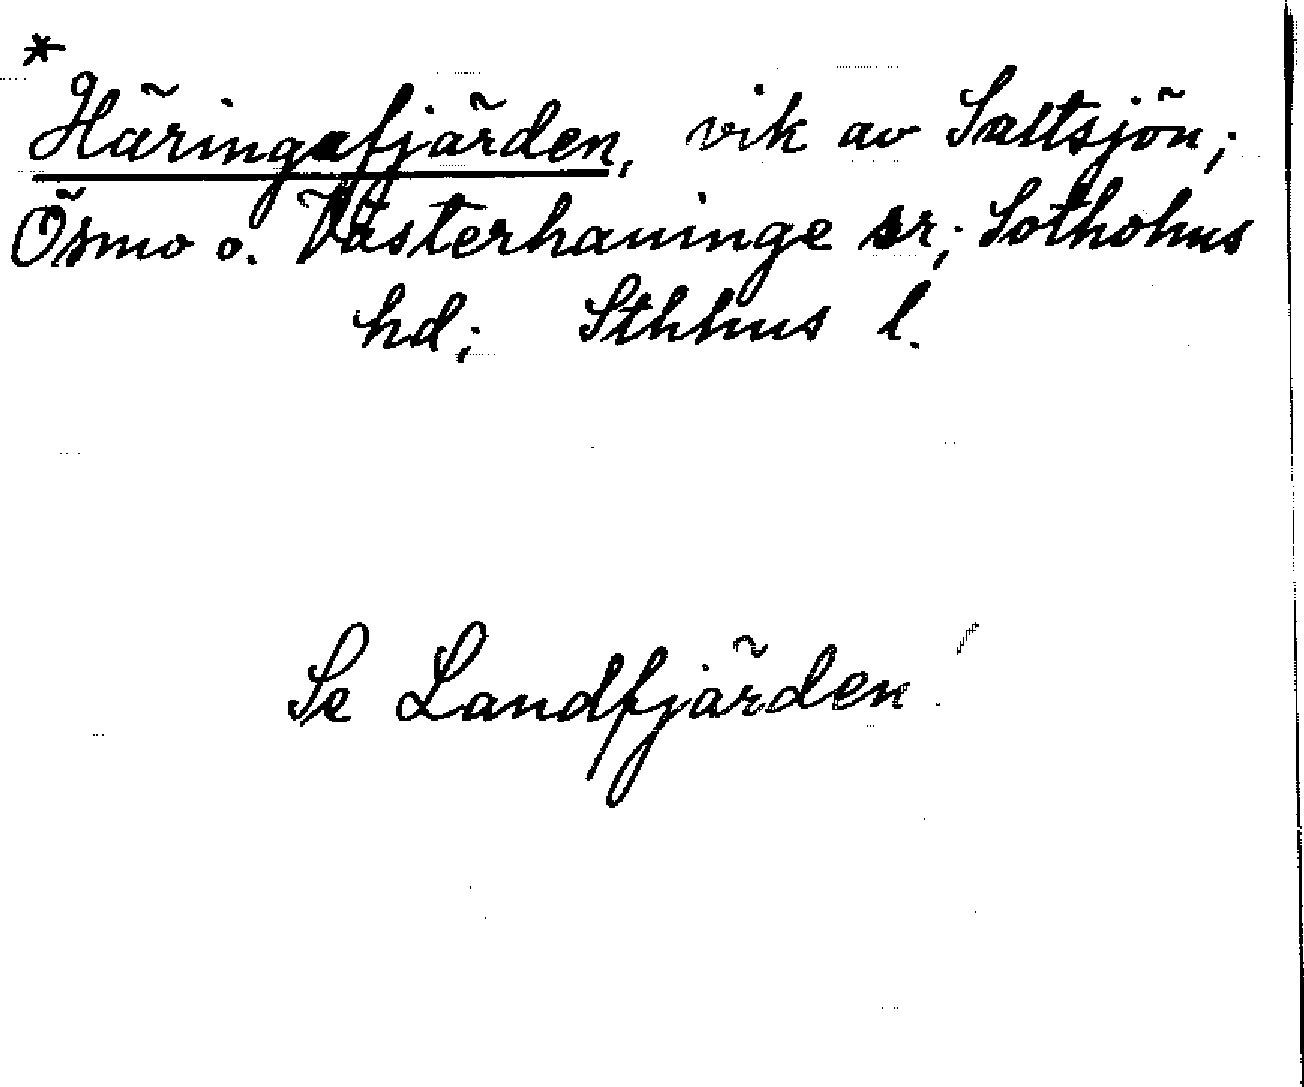 *
Häringefjärden, vik av Saltsjön;
Ösmo o. Västerhaninge sr; Sotholms
hd; Sthlms l.
Se Landfjärden